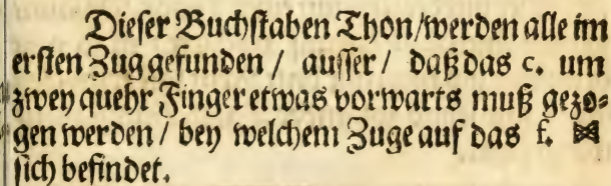 Dieser Buchstaben Thon/werden alle im
ersten Zug gefunden / ausser / daß das c. um
zwey quehr Finger etwas vorwarts muß gezo=
gen werden / bey welchem Zuge auf das f.
sich befindet.